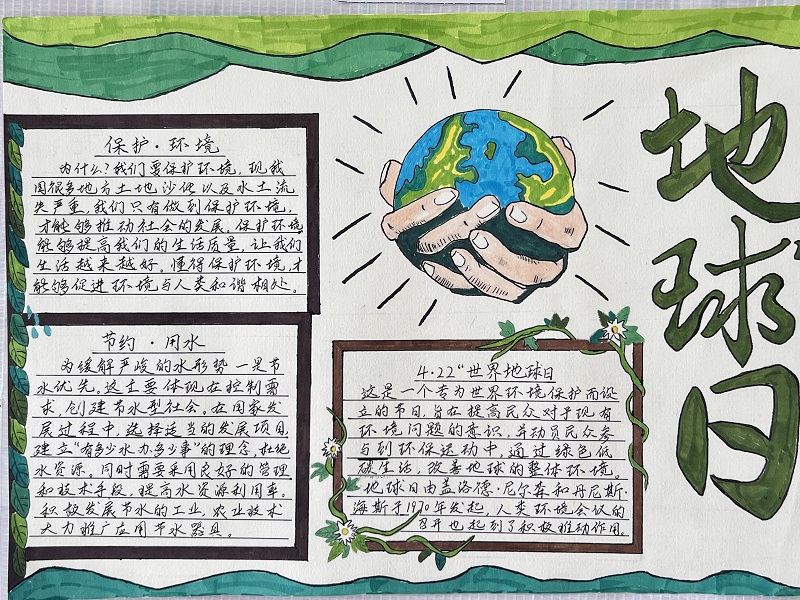 地球日
保护·环境
为什么?我们要保护环境,现我
国很多地方土地沙化以及水土流
失严重,我们只有做到保护环境,
才能够推动社会的发展。保护环境
能够提高我们的生活质量,让我们
生活越来越好。懂得保护环境,才
能够促进环境与人类和谐相处。
节约·用水
为缓解严峻的水形势一是节
水优先,这主要体现在控制需
求,创建节水型社会。在国家发
展过程中,选择适当的发展项目,
建立"有多少水办多少事"的理念,杜绝
水资源。同时需要采用良好的管理
和技术手段,提高水资源利用率。
积极发展节水的工业,农业技术
大力推广应用节水器具。
4.22"世界地球日
这是一个专为世界环境保护而设
立的节日,旨在提高民众对于现有
环境问题的意识,并动员民众参
与到环保运动中,通过绿色低
碳生活,改善地球的整体环境。
地球日由盖洛德·尼尔森和丹尼斯·
海斯于1970年发起,人类环境会议的
召开也起到了积极推动作用。